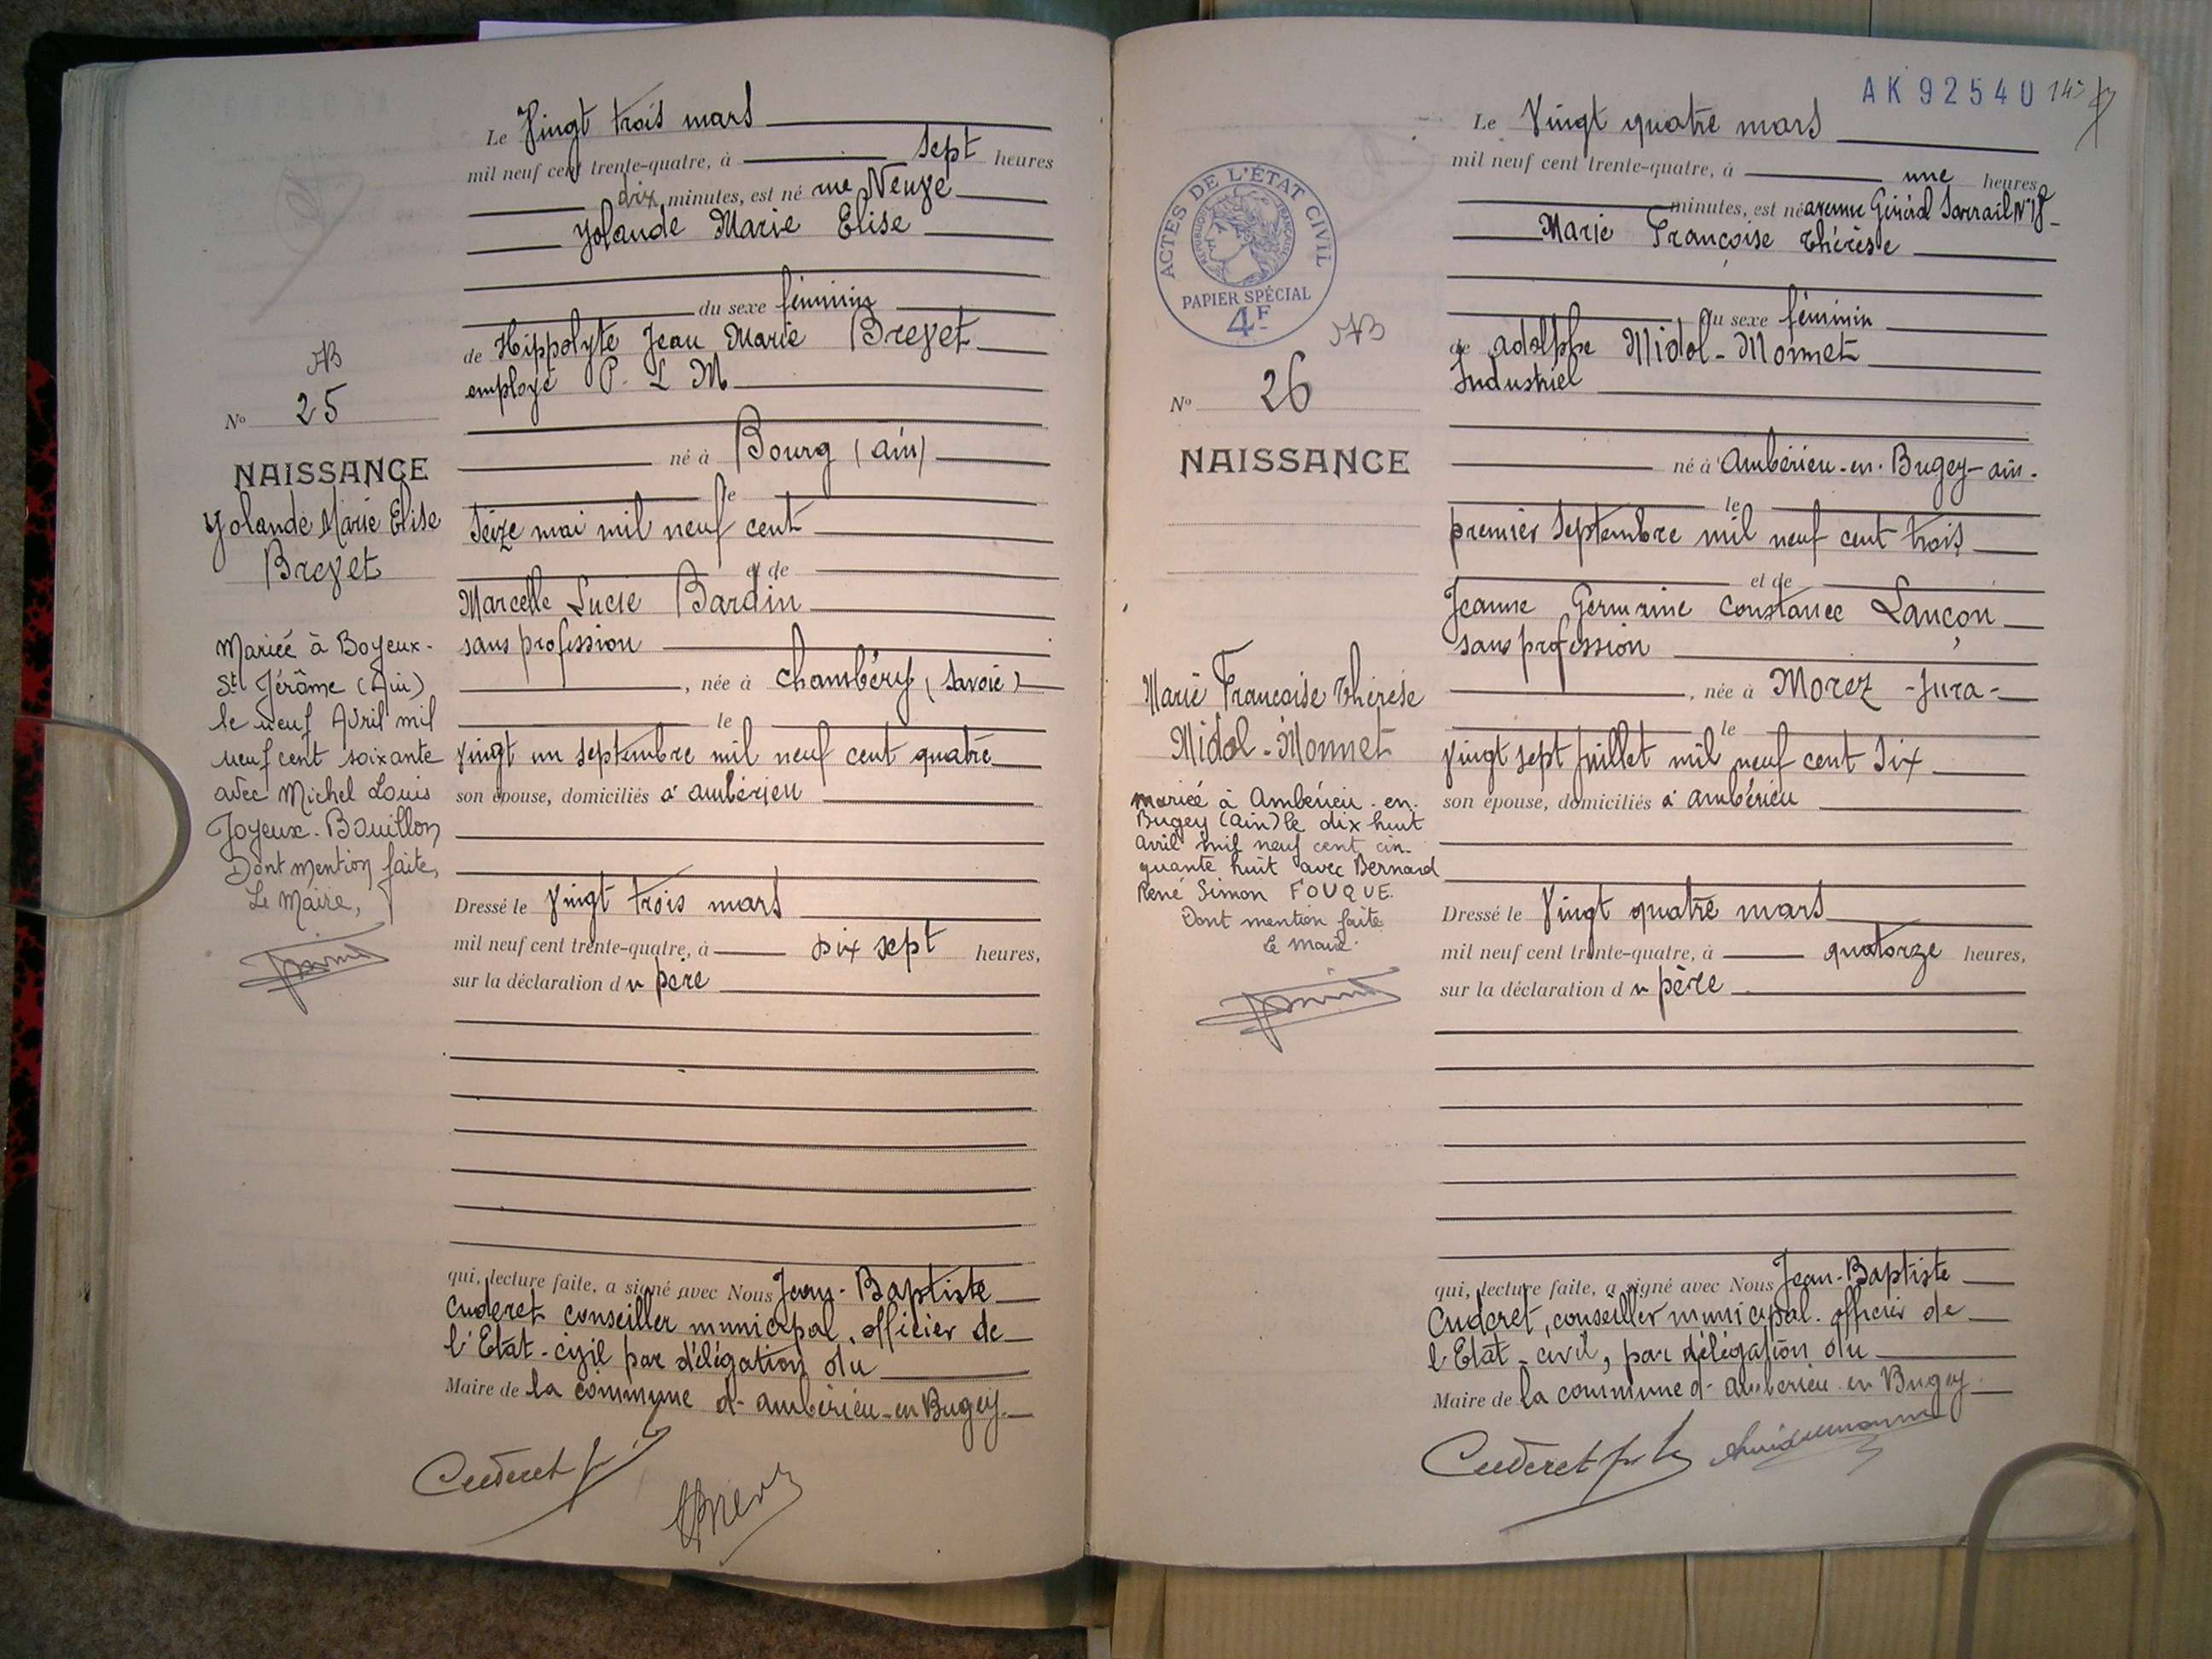 Le Vingt trois mars
mil neuf cent trente-quatre, à sept heures
dix minutes, est né rue Neuve
Yolande Marie Elise
du sexe féminin
de Hippolyte Jean Marie Brevet
employé P. L M
né à Bourg (ain)
le
seize mai mil neuf cent
et de
Marcelle Lucie Bardin
sans profession
, née à Chambéry (Savoie)
le
vingt un septembre mil neuf cent quatre
son épouse, domiciliés à ambérieu
Dressé le Vingt trois mars
mil neuf cent trente-quatre, à dix sept heures,
sur la déclaration du père
qui, lecture faite, a signé avec Nous Jean-Baptiste
Cuderet conseiller municipal, officier de
l'Etat-civil par délégation du
Maire de la commune d'ambérieu-en Bugey
Cuderet
AB
No 25
NAISSANCE
Yolande Marie Elise
Brevet
Mariée à Boyeux-
St Jérôme (Ain)
le neuf Avril mil
neuf cent soixante
avec Michel Louis
Joyeux-Bouillon
Dont mention faite,
Le Maire,
AK92540
Le Vingt quatre mars
mil neuf cent trente-quatre, à une heures
minutes, est né avenue Général Sarrail N°18
Marie Françoise Thérèse
du sexe féminin
de adolphe Midol-Monnet
Industriel
né à Ambérieu-en-Bugey-ain.
le
premier septembre mil neuf cent trois
et de
Jeanne Germaine Constance Lançon
sans profession
, née à Morez -Jura-
le
vingt sept juillet mil neuf cent six
son épouse, domiciliés à ambérieu
Dressé le Vingt quatre mars
mil neuf cent trente-quatre, à quatorze heures,
sur la déclaration du père
qui, lecture faite, a signé avec Nous Jean-Baptiste
Cuderet, conseiller municipal. officier de
l'Etat-civil, par délégation du
Maire de la commune d'ambérieu en Bugey
Cuderet
ACTES DE L'ÉTAT CIVIL
RÉPUBLIQUE FRANÇAISE
PAPIER SPÉCIAL
4F
AB
No 26
NAISSANCE
Marie Françoise Thérèse
Midol-Monnet
mariée à Ambérieu-en-
Bugey (Ain) le dix huit
avril mil neuf cent cin-
quante huit avec Bernard
René Simon FOUQUE.
Dont mention faite
Le Maire.